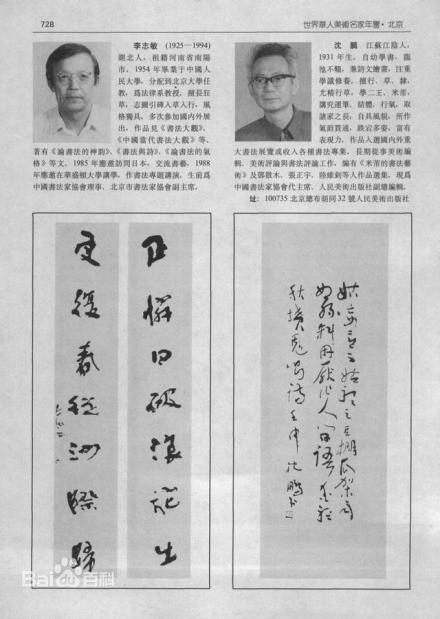 728
世界華人美術名家年鑒·北京
李志敏 (1925—1994)
湖北人，祖籍河南省南陽
市。1954 年畢業于中國人
民大學，分配到北京大學任
教，爲法律系教授。擅長狂
草，志闢引碑入草入行，風
格獨具，多次參加國内外展
出，作品見《書法大觀》、
《中國當代書法大觀》等。
著有《論書法的神韵》、《書法與詩》、《論書法的氣
格》等文。1985 年應邀訪問日本，交流書藝，1988
年應邀在華盛頓大學講學，作書法專題講演。生前爲
中國書法家協會理事、北京市書法家協會副主席。
沈 鵬 江蘇江陰人，
1931 年生。自幼學書，臨
池不輟，兼詩文繪畫，注重
學識修養。擅行、草、隸，
尤精行草，學二王、米芾，
講究運筆、結體、行氣，取
諸家之長，自具風貌，所作
氣韵貫通，跌宕多姿，富有
表現力。作品入選國内外重
大書法展覽或收入各種書法專集。長期從事美術編
輯、美術評論與書法評論工作，編有《米芾的書法藝
術》及鄧散木、張正宇、陸維釗等人作品選集。現爲
中國書法家協會代主席、人民美術出版社副總編輯。
址：100735 北京總布胡同32 號人民美術出版社
正憐日破浪花出
更復春從沙際歸
姑妄言之姑聽之豆棚瓜架雨
如絲料應厭作人間語愛聽
秋墳鬼唱詩
沈鵬
Bai百科